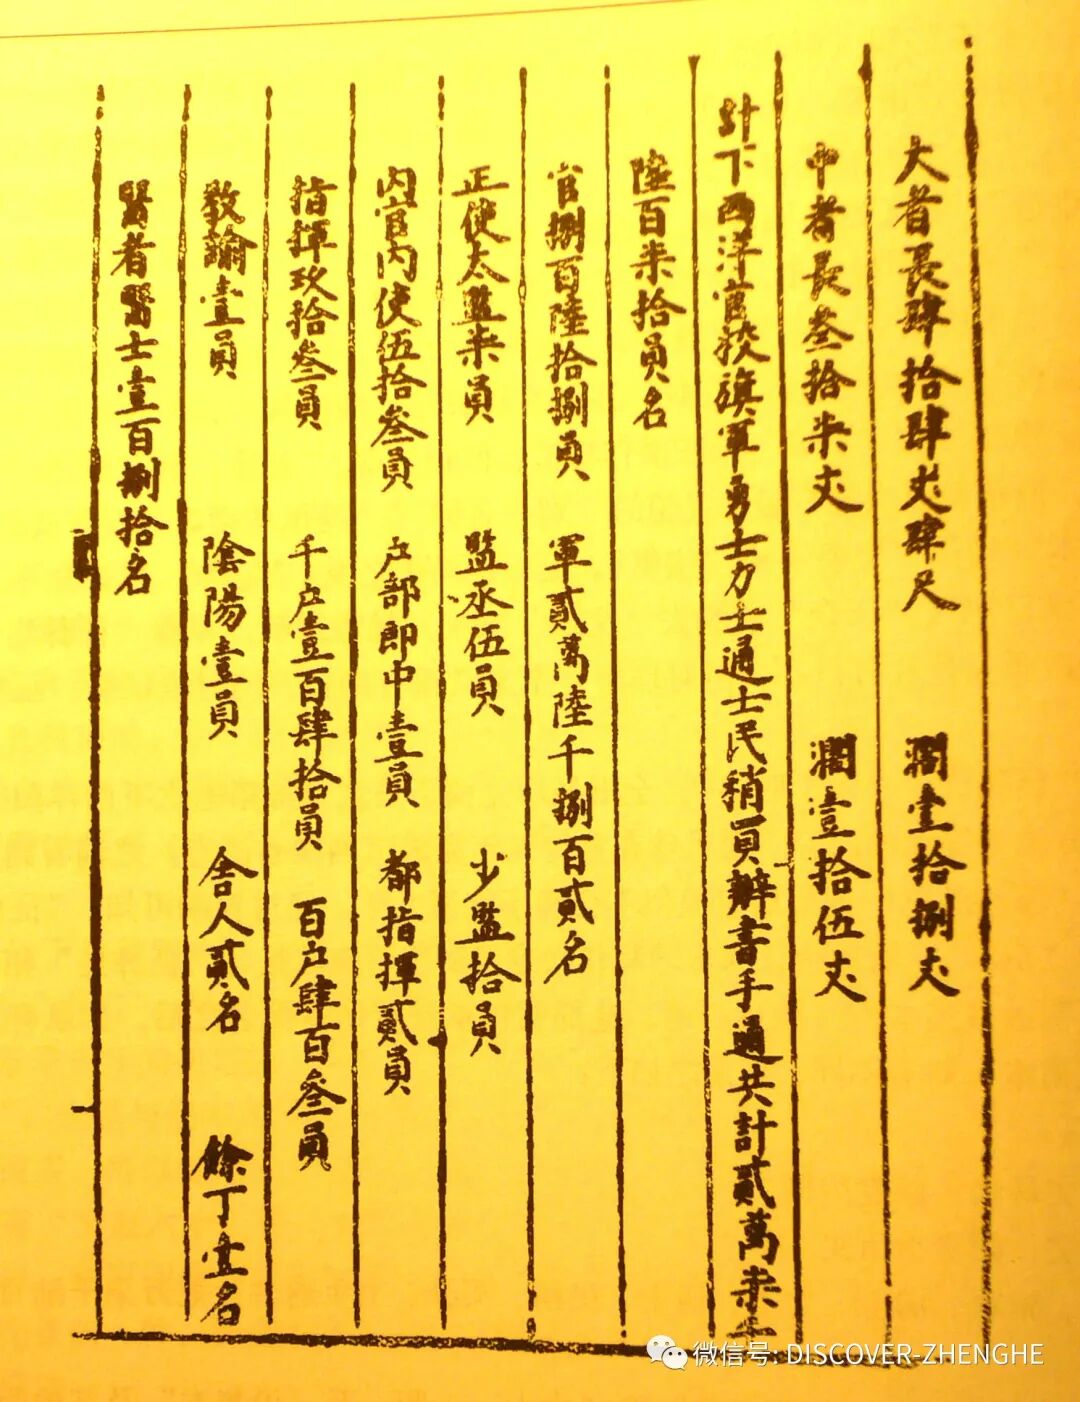 大者長肆拾肆丈肆尺 濶壹拾捌丈
中者長叄拾柒丈 濶壹拾伍丈
計下西洋官校旗軍勇士力士通士民稍買辦書手通共計貳萬柒千
陸百柒拾員名
官捌百陸拾捌員 軍貳萬陸千捌百貳名
正使太監柒員 監丞伍員 少監拾員
內官內使伍拾叄員 户部郎中壹員 都指揮貳員
指揮玖拾叄員 千户壹百肆拾員 百户肆百叄員
教諭壹員 陰陽壹員 舍人貳名 餘丁壹名
醫者醫士壹百捌拾名
微信号: DISCOVER-ZHENGHE